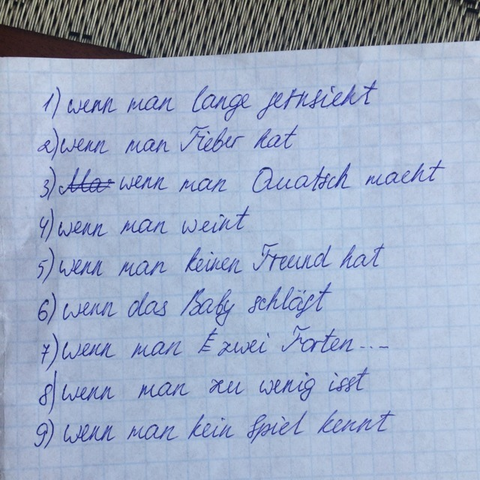 1) wenn man lange fernsieht
2) wenn man Fieber hat
3) wenn man Quatsch macht
4) wenn man weint
5) wenn man keinen Freund hat
6) wenn das Baby schläft
7) wenn man zwei Torten...
8) wenn man zu wenig isst
9) wenn man kein Spiel kennt